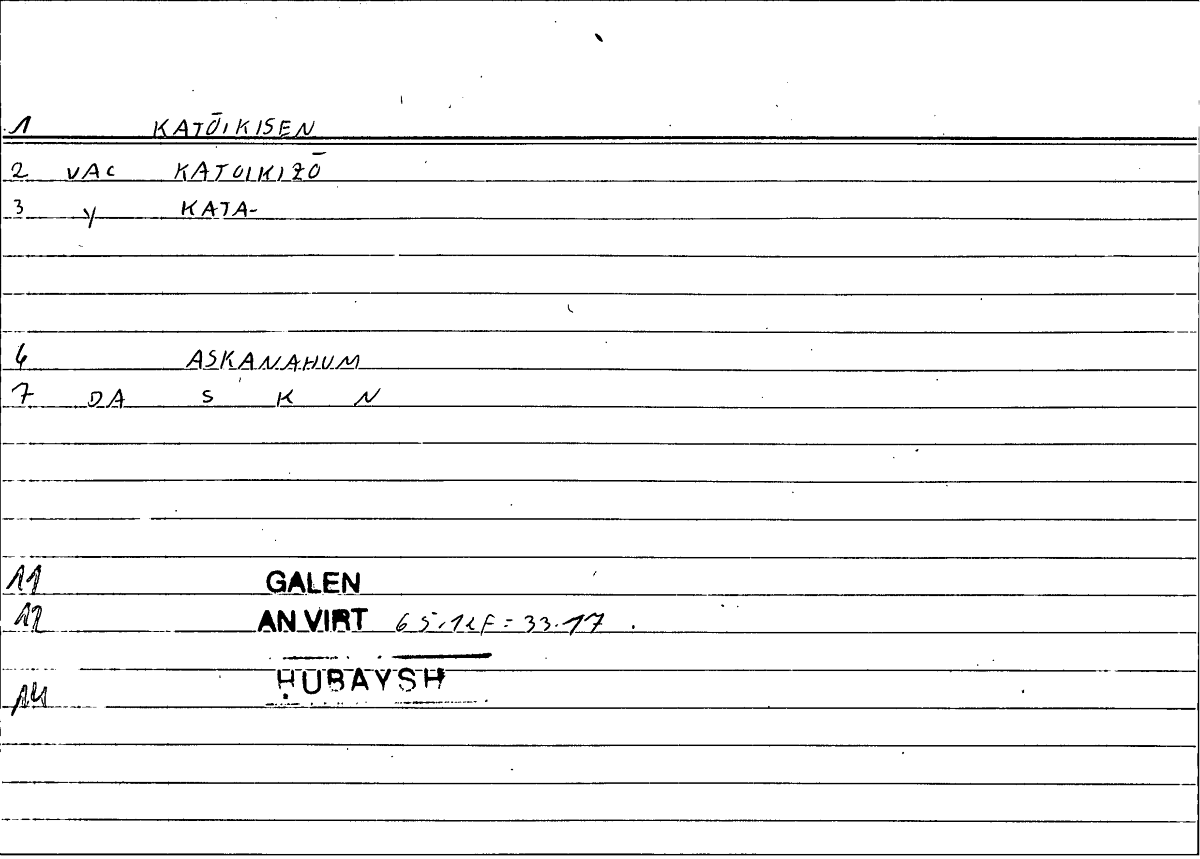 1 KATŌIKISEN
2 VAC KATOIKIZŌ
3 Y KATA-
6 ASKANAHUM
7 DA S K N
11 GALEN
12 AN VIRT 65.12F = 33.17 .
14 ḤUBAYSH